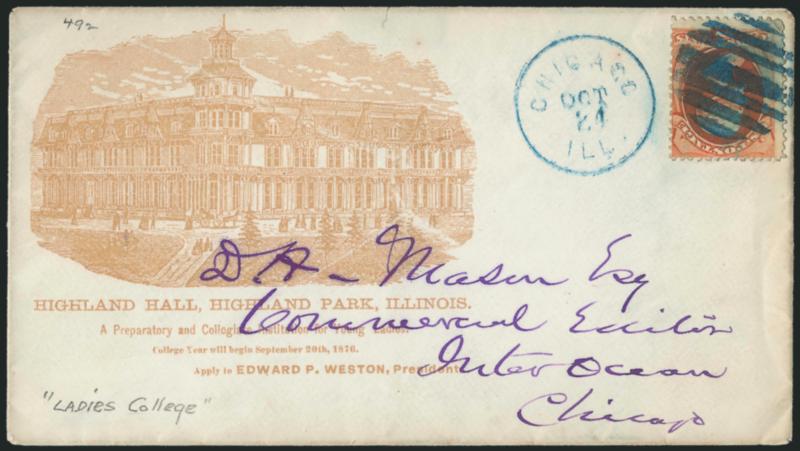 492
CHICAGO
OCT
24
ILL.
D. A - Mason Esq
Commercial Editor
Inter Ocean
Chicago
HIGHLAND HALL, HIGHLAND PARK, ILLINOIS.
A Preparatory and Collegiate Institution for Young Ladies.
College Year will begin September 20th, 1876.
Apply to EDWARD P. WESTON, President
"LADIES College"